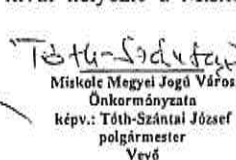 Tóth-Szántai
Miskolc Megyei Jogú Város
Önkormányzata
képv.: Tóth-Szántai József
polgármester
Vevő